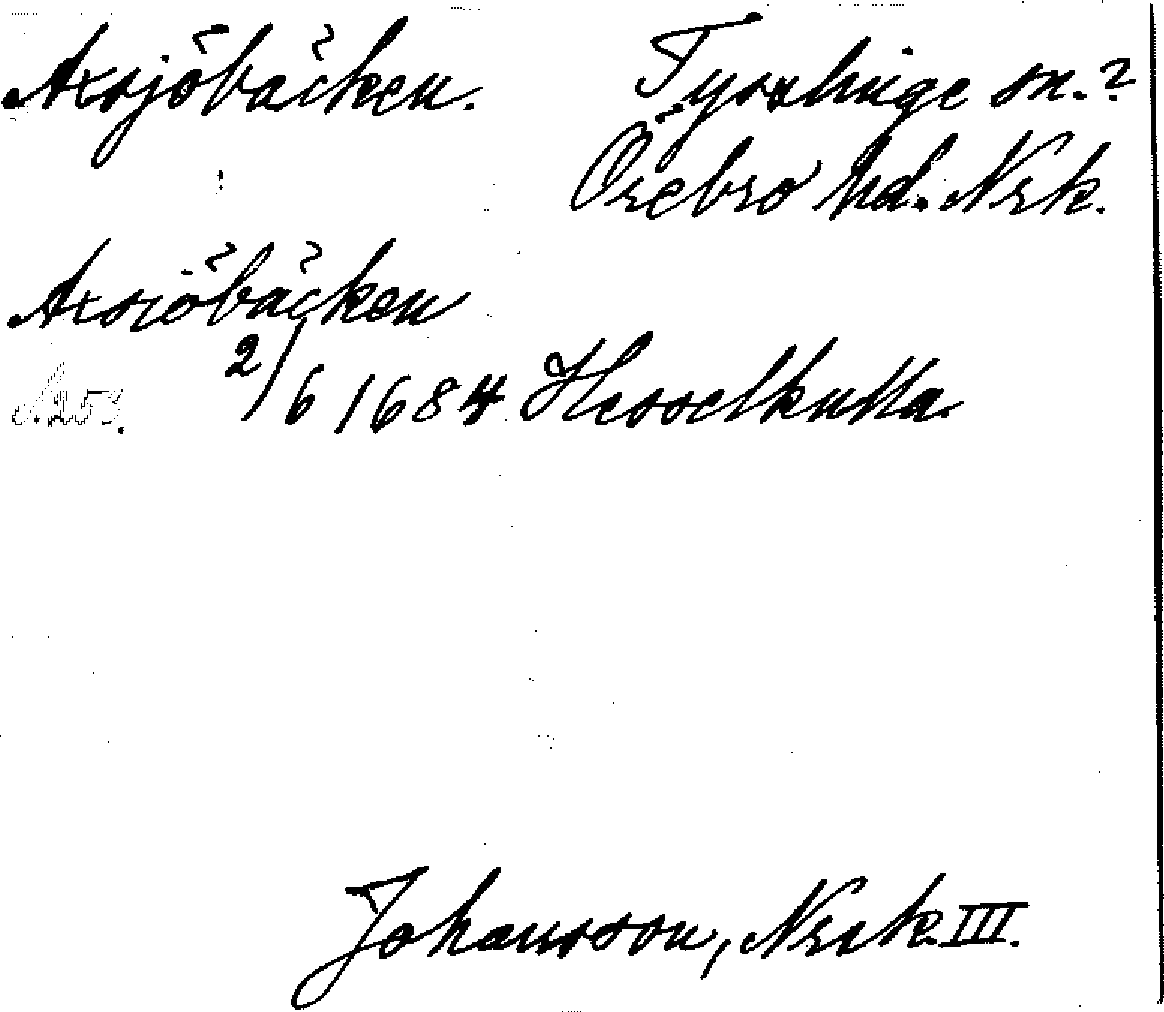 Axsjöbäcken. Tysslinge sn.?
Örebro hd. Nrk.
Axsiöbäcken
2/6 1684 Hesselkulla.
Johansson, Nrke III.